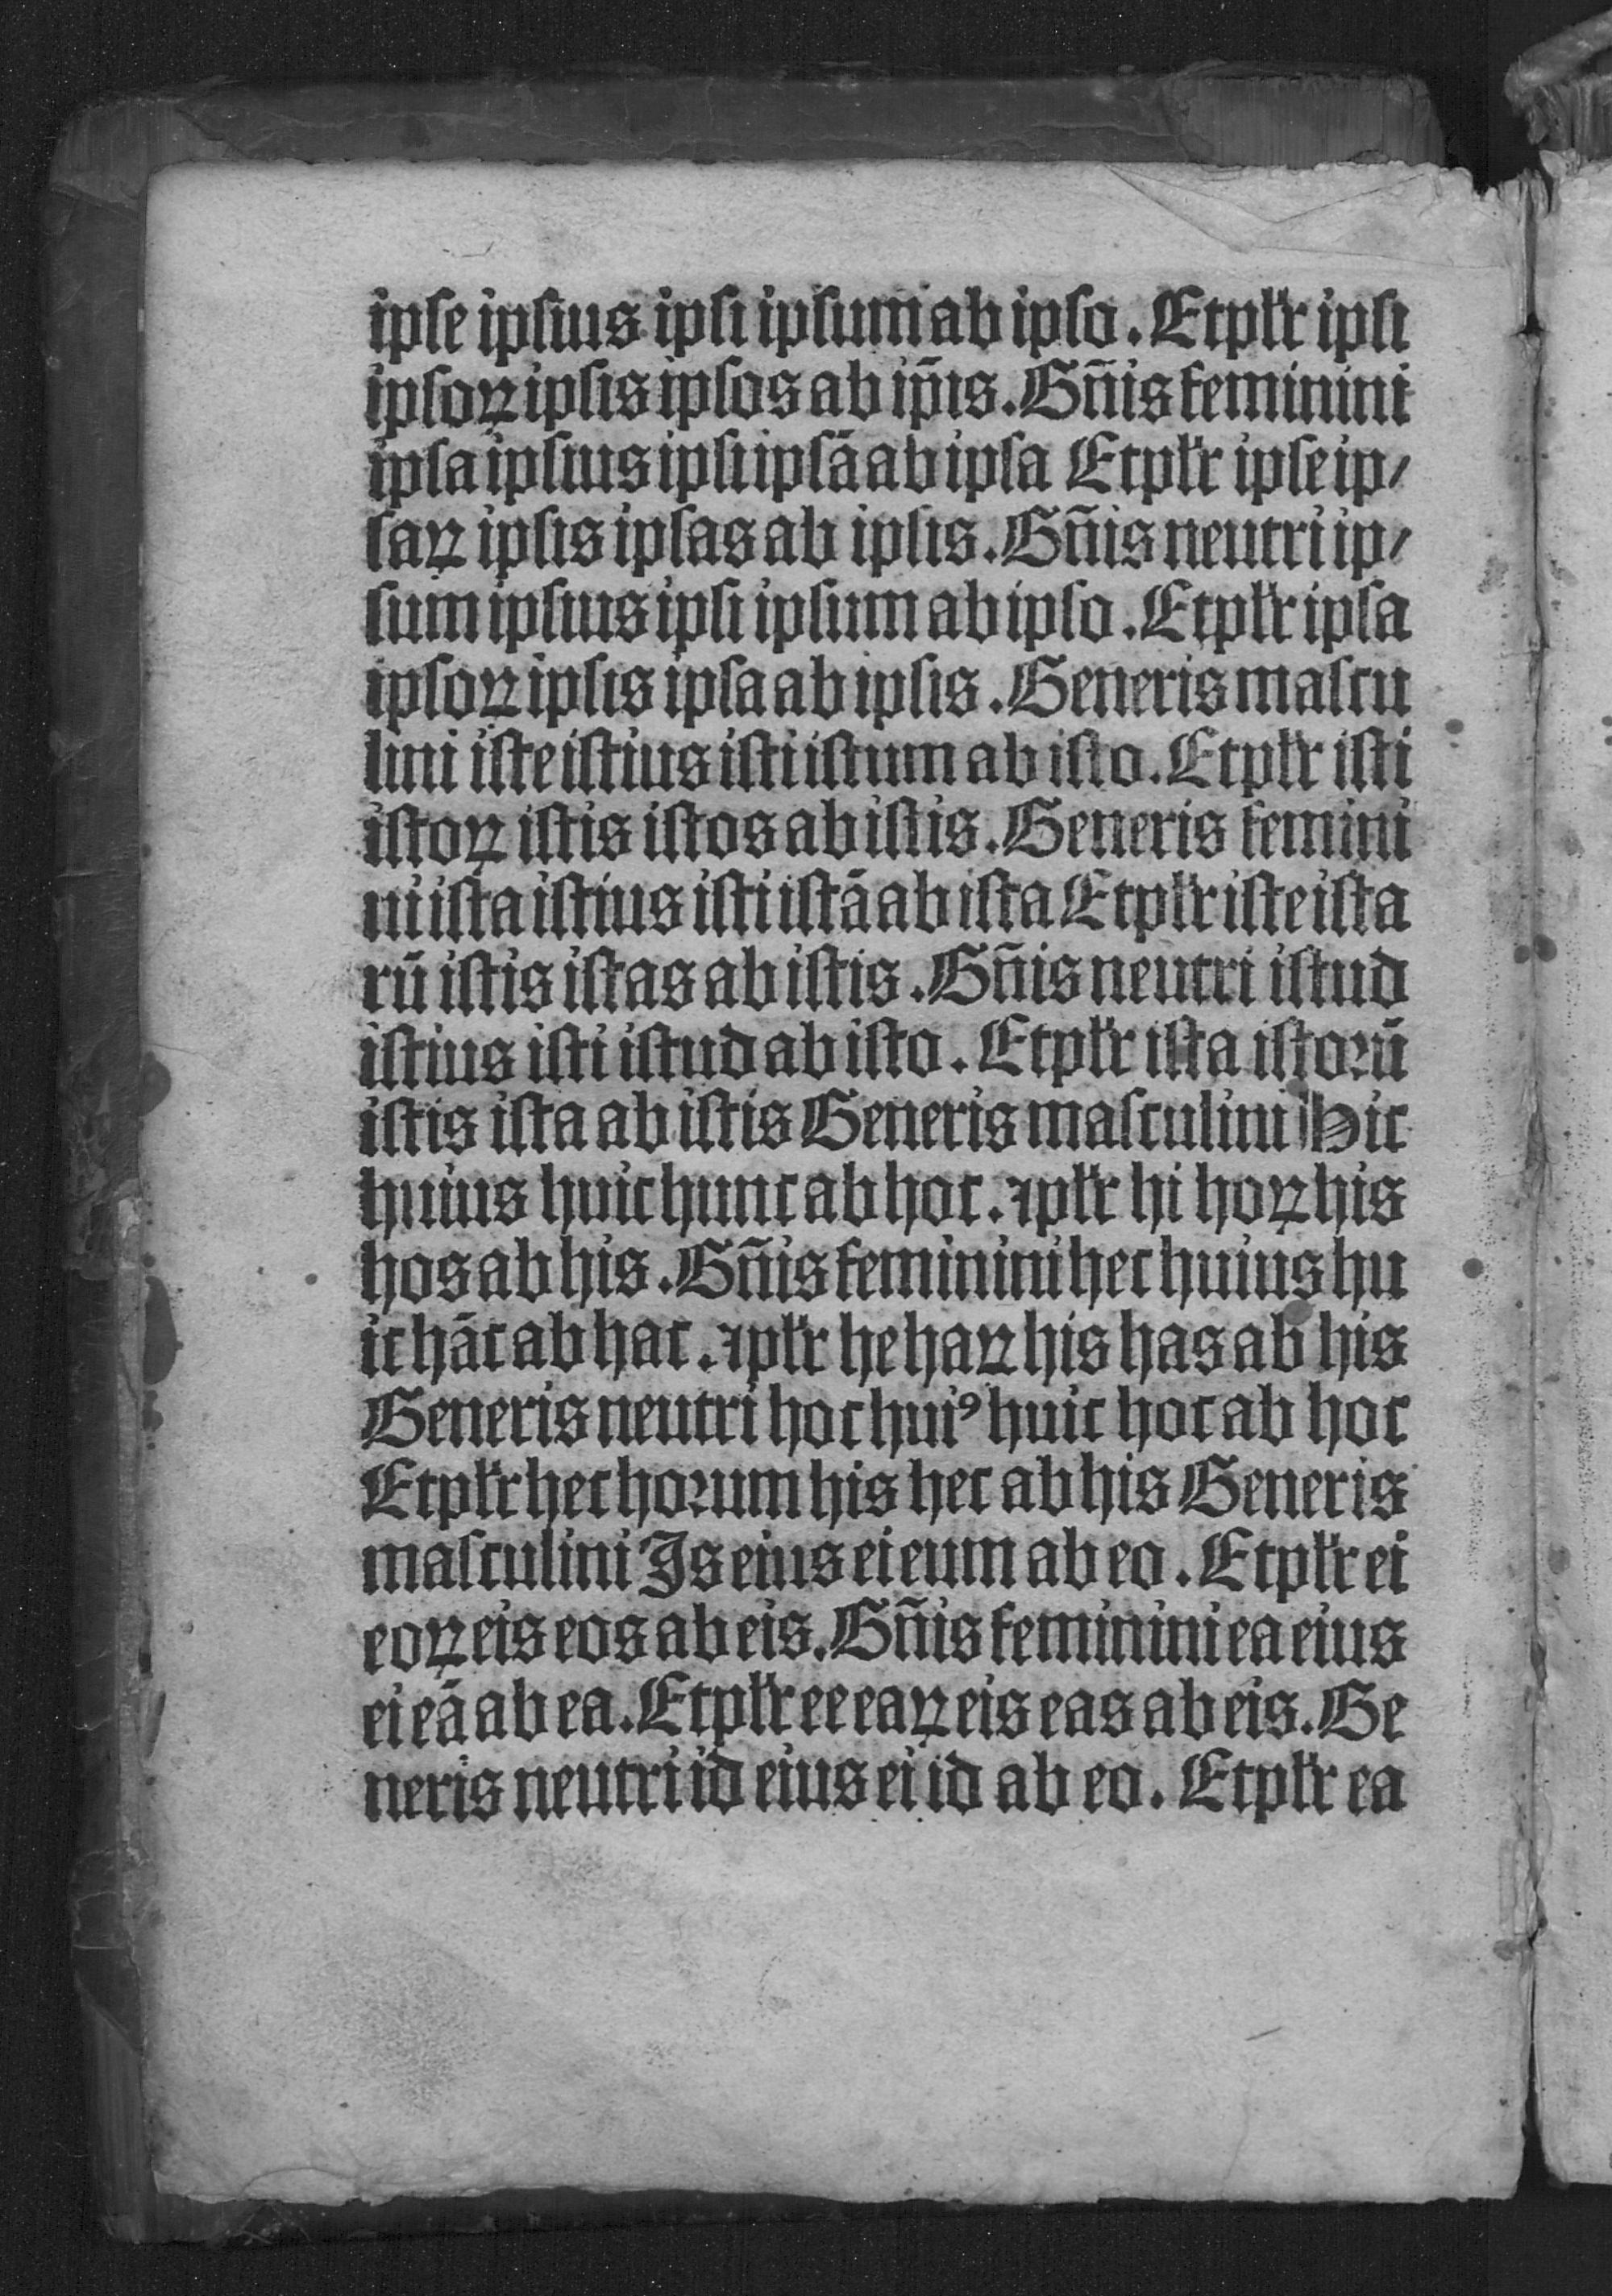 ipſe ipſius ipſi ipſum ab ipſo. Et pl̄r ipſi
ipſoꝝ ipſis ipſos ab ip̄is. Gn̄is feminini
ipſa ipſius ipſi ipſā ab ipſa Et pl̄r ipſe ip/
ſaꝝ ipſis ipſas ab ipſis. Gn̄is neutri ip/
ſum ipſius ipſi ipſum ab ipſo. Et pl̄r ipſa
ipſoꝝ ipſis ipſa ab ipſis. Generis maſcu
lini iſte iſtius iſti iſtum ab iſto. Et pl̄r iſti
iſtoꝝ iſtis iſtos ab iſtis. Generis femini
ni iſta iſtius iſti iſtā ab iſta Et pl̄r iſte iſta
rū iſtis iſtas ab iſtis. Gn̄is neutri iſtud
iſtius iſti iſtud ab iſto. Et pl̄r iſta iſtoꝛū
iſtis iſta ab iſtis Generis maſculini Hic
huius huic hunc ab hoc. ⁊ pl̄r hi hoꝝ his
hos ab his. Gn̄is feminini hec huius hu
ic hāc ab hac. ⁊ pl̄r he haꝝ his has ab his
Generis neutri hoc huiꝰ huic hoc ab hoc
Et pl̄r hec hoꝛum his hec ab his Generis
maſculini Is eius ei eum ab eo. Et pl̄r ei
eoꝝ eis eos ab eis. Gn̄is feminini ea eius
ei eā ab ea. Et pl̄r ee eaꝝ eis eas ab eis. Ge
neris neutri id eius ei id ab eo. Et pl̄r ea